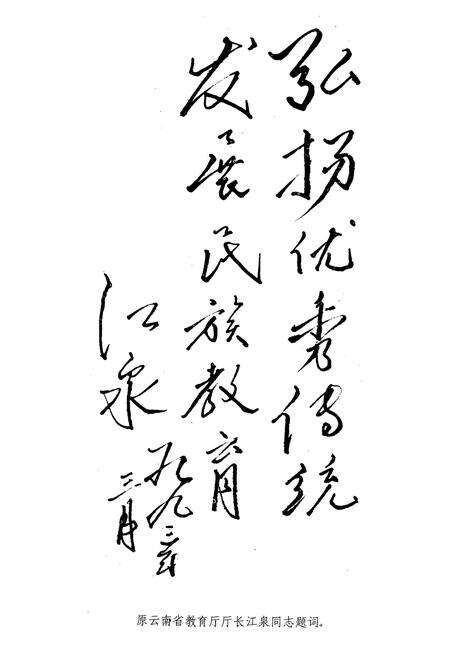 弘扬优秀传统
发展民族教育
江泉
一九九三年
三月
原云南省教育厅厅长江泉同志题词。